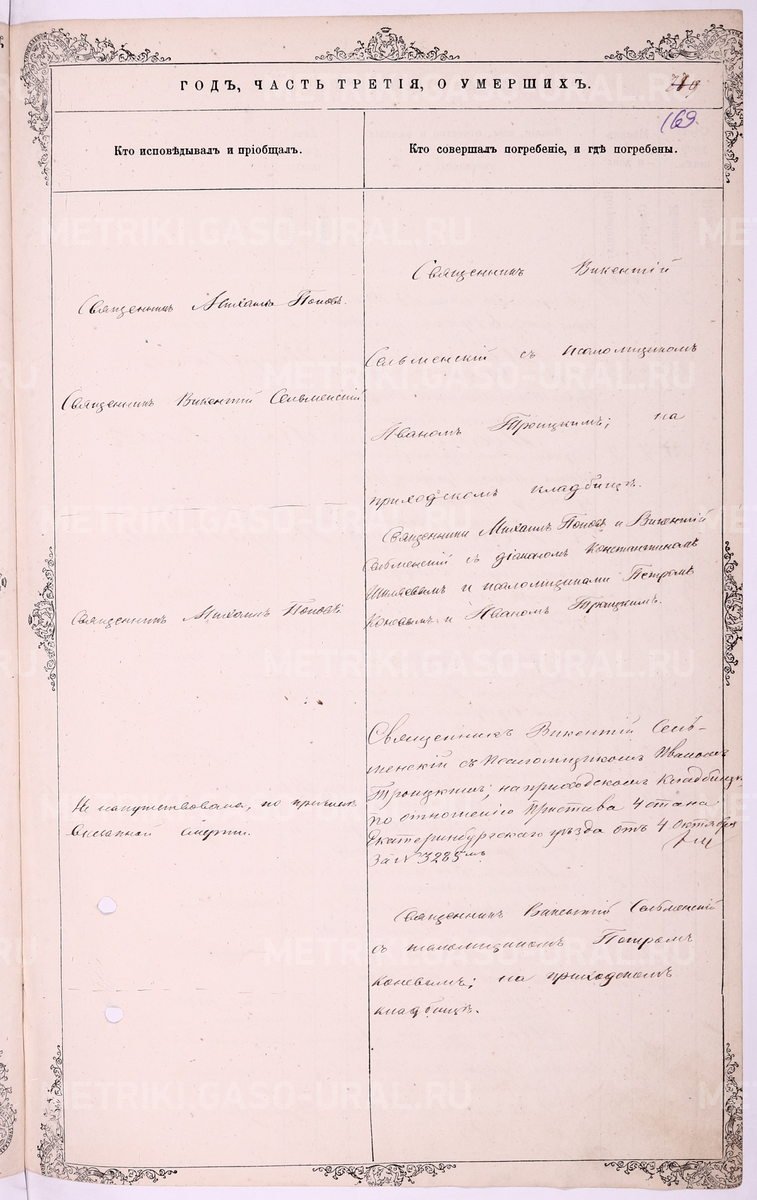 ГОДЪ, ЧАСТЬ ТРЕТІЯ, О УМЕРШИХЪ.
169.
Кто исповѣдывалъ и пріобщалъ.
Кто совершалъ погребеніе, и гдѣ погребены.
METRIKI.GASO-URAL.RU
Священникъ Михаилъ Поповъ.
Священникъ Викентій Сельменскій
Священникъ Михаилъ Поповъ
Не напутствована, по причинѣ
внезапной смерти.
Священникъ Викентій
Сельменскій съ псаломщикомъ
Иваномъ Троицкимъ; на
приходскомъ кладбищѣ.
Священники Михаилъ Поповъ и Викентій
Сельменскій съ діакономъ Константиномъ
и псаломщиками Петромъ
Коневымъ и Иваномъ Троицкимъ.
Священникъ Викентій Сель-
менскій съ Псаломщикомъ Иваномъ
Троицкимъ; на приходскомъ Кладбищѣ
по отношенію Пристава 4 стана
Екатеринбургскаго уѣзда отъ 4 Октября
за № 3285мъ
Священникъ Викентій Сельменскій
съ псаломщикомъ Петромъ
Коневымъ; на приходскомъ
кладбищѣ.